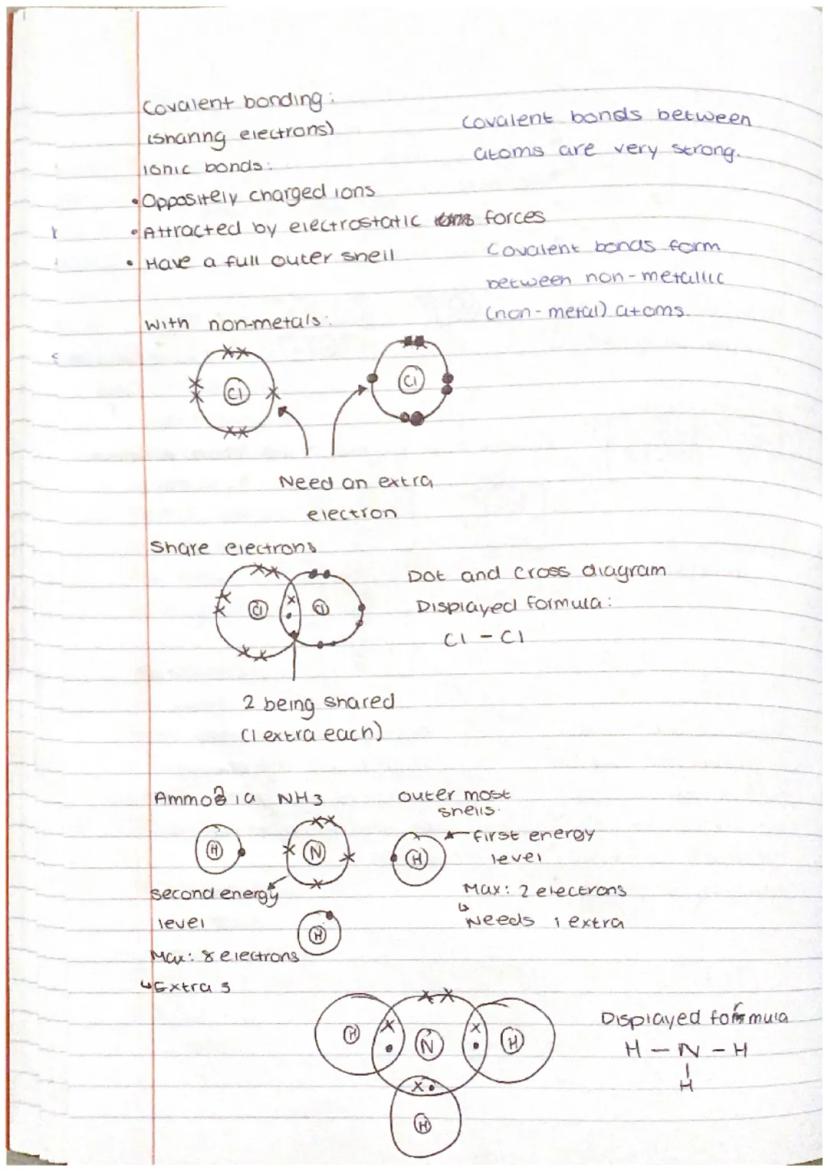 Covalent bonding:
(sharing electrons)
Covalent bonds between
atoms are very strong.
Ionic bonds:
• Oppositely charged ions
• Attracted by electrostatic forces
• Have a full outer shell
Covalent bonds form
between non-metallic
(non-metal) atoms.
With non-metals:
Cl
Cl
Need an extra
electron
Share electrons
Cl
Cl
Dot and cross diagram
Displayed formula:
Cl - Cl
2 being shared
(1 extra each)
Ammonia NH3
outer most
shells.
H
N
H
first energy
level
Max: 2 electrons
↳ Needs 1 extra
second energy
level
H
Max: 8 electrons
↳ Extra 3
H
N
H
H
Displayed formula
H - N - H
H